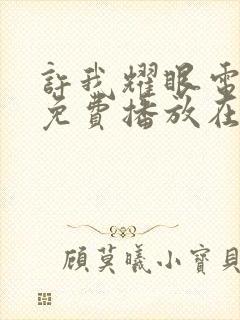 許我耀眼電
免費播放在
顧莫曦小寶貝